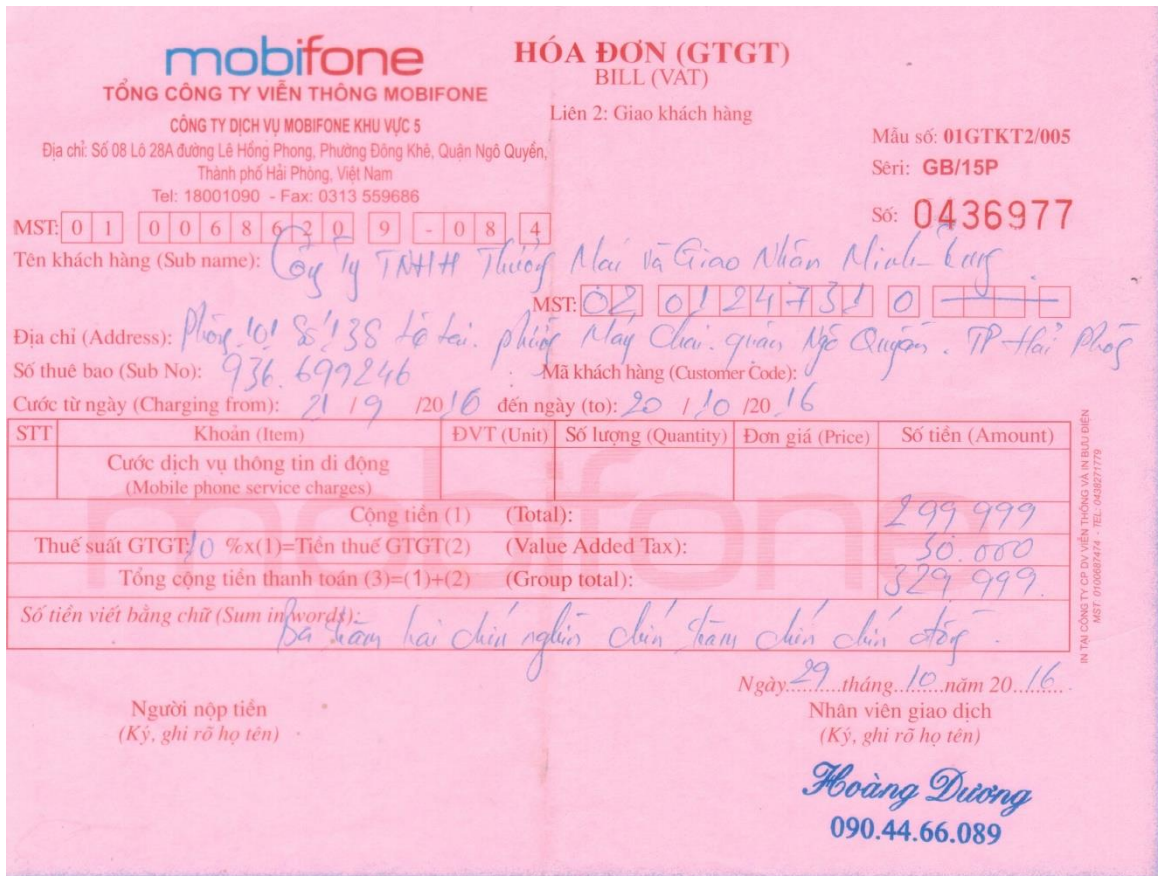 mobifone
TỔNG CÔNG TY VIỄN THÔNG MOBIFONE
CÔNG TY DỊCH VỤ MOBIFONE KHU VỰC 5
Địa chỉ: Số 08 Lô 28A đường Lê Hồng Phong, Phường Đông Khê, Quận Ngô Quyền,
Thành phố Hải Phòng, Việt Nam
Tel: 18001090 - Fax: 0313 559686
HÓA ĐƠN (GTGT)
BILL (VAT)
Liên 2: Giao khách hàng
Mẫu số: 01GTKT2/005
Sêri: GB/15P
Số: 0436977
MST: 01 0068620 9 - 084
Tên khách hàng (Sub name): Công ty TNHH Thương Mại và Giao Nhận Minh
MST: 02 0124731 0
Địa chỉ (Address): Phòng 101 Số 138 Lê Lai. phường Máy Chai. quận Ngô Quyền. TP Hải Phòng
Số thuê bao (Sub No): 936.699246 Mã khách hàng (Customer Code):
Cước từ ngày (Charging from): 21 / 9 /2016 đến ngày (to): 20 / 10 /2016
STT Khoản (Item) ĐVT (Unit) Số lượng (Quantity) Đơn giá (Price) Số tiền (Amount)
Cước dịch vụ thông tin di động
(Mobile phone service charges)
Cộng tiền (1) (Total): 299 999
Thuế suất GTGT: 10 %x(1)=Tiền thuế GTGT(2) (Value Added Tax): 30.000
Tổng cộng tiền thanh toán (3)=(1)+(2) (Group total): 329 999.
Số tiền viết bằng chữ (Sum in words): Ba trăm hai chín nghìn chín trăm chín chín đồng.
Ngày 29 tháng 10 năm 2016
Người nộp tiền
(Ký, ghi rõ họ tên)
Nhân viên giao dịch
(Ký, ghi rõ họ tên)
Hoàng Dương
090.44.66.089
IN TẠI CÔNG TY CP DV VIỄN THÔNG VÀ IN BƯU ĐIỆN
MST: 0100687474 - TEL: 0438271779